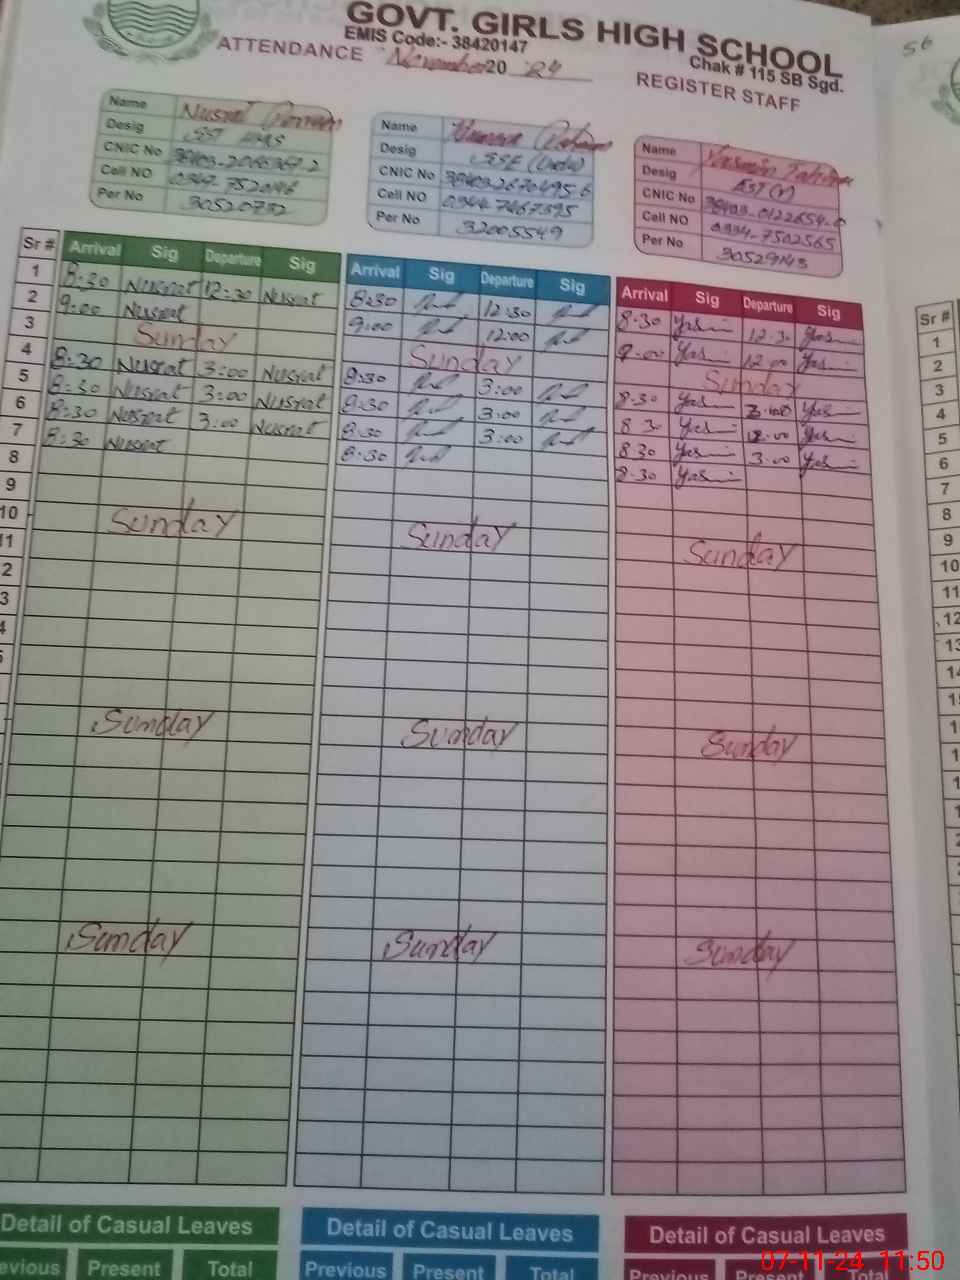 GOVT. GIRLS HIGH SCHOOL
EMIS Code:- 38420147
Chak # 115 SB Sgd.
ATTENDANCE November 2024
REGISTER STAFF
56
Name Nusrat Parveen
Desig
CNIC No
Cell NO
Per No 30520732
Name
Desig SESE (Urdu)
CNIC No 38403-2670495-6
Cell NO 0344-7467395
Per No 32005549
Name Yasmin Tahira
Desig
CNIC No 38403-0122654-0
Cell NO 0334-7502565
Per No 30529143
Sr # Arrival Sig Departure Sig Arrival Sig Departure Sig Arrival Sig Departure Sig
1 8:30 Nusrat 12:30 Nusrat 8:30 12:30 8:30 Yas 12:30 Yas
2 9:00 Nusrat 9:00 12:00 9:00 Yas 12:00 Yas
3 Sunday Sunday Sunday
4 8:30 Nusrat 3:00 Nusrat 8:30 3:00 8:30 Yas 3:00 Yas
5 8:30 Nusrat 3:00 Nusrat 8:30 3:00 8:30 Yas Yas
6 8:30 Nusrat 3:00 Nusrat 8:30 3:00 8:30 Yas 3:00 Yas
7 8:30 Nusrat 8:30 8:30 Yas
8
9
10 Sunday Sunday Sunday
11
2
3
4
5
Sunday Sunday Sunday
Sunday Sunday Sunday
Detail of Casual Leaves Detail of Casual Leaves Detail of Casual Leaves
Previous Present Total Previous Present Total Previous Present Total
Sr #
1
2
3
4
5
6
7
8
9
10
11
12
13
07-11-24 11:50